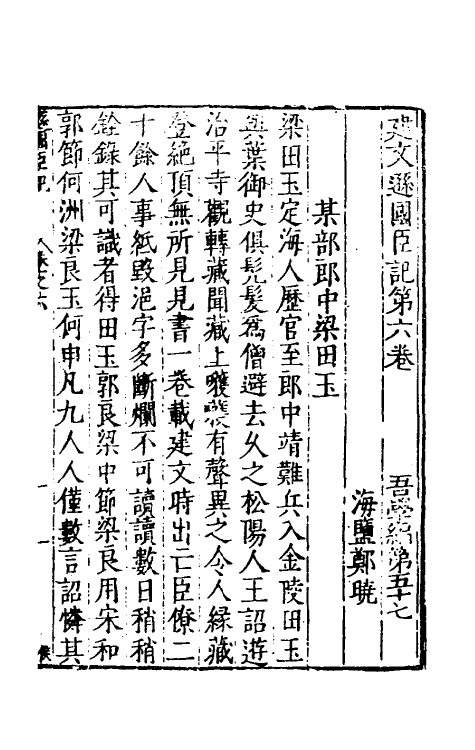 建文遜國臣記第六卷 吾學編第五十七
海鹽鄭曉
某部郎中梁田玉
梁田玉定海人歷官至郎中靖難兵入金陵田玉
與葉御史俱髡髮爲僧避去久之松陽人王詔遊
治平寺觀轉藏聞藏上嚄嚄有聲異之令人緣藏
登絶頂無所見見書一卷載建文時出亡臣僚二
十餘人事紙毀浥字多斷爛不可讀讀數日稍稍
銓錄其可識者得田玉郭良梁中節梁良用宋和
郭節何洲梁良玉何申凡九人人僅數言詔憐其
遜國臣記 卷之六 一